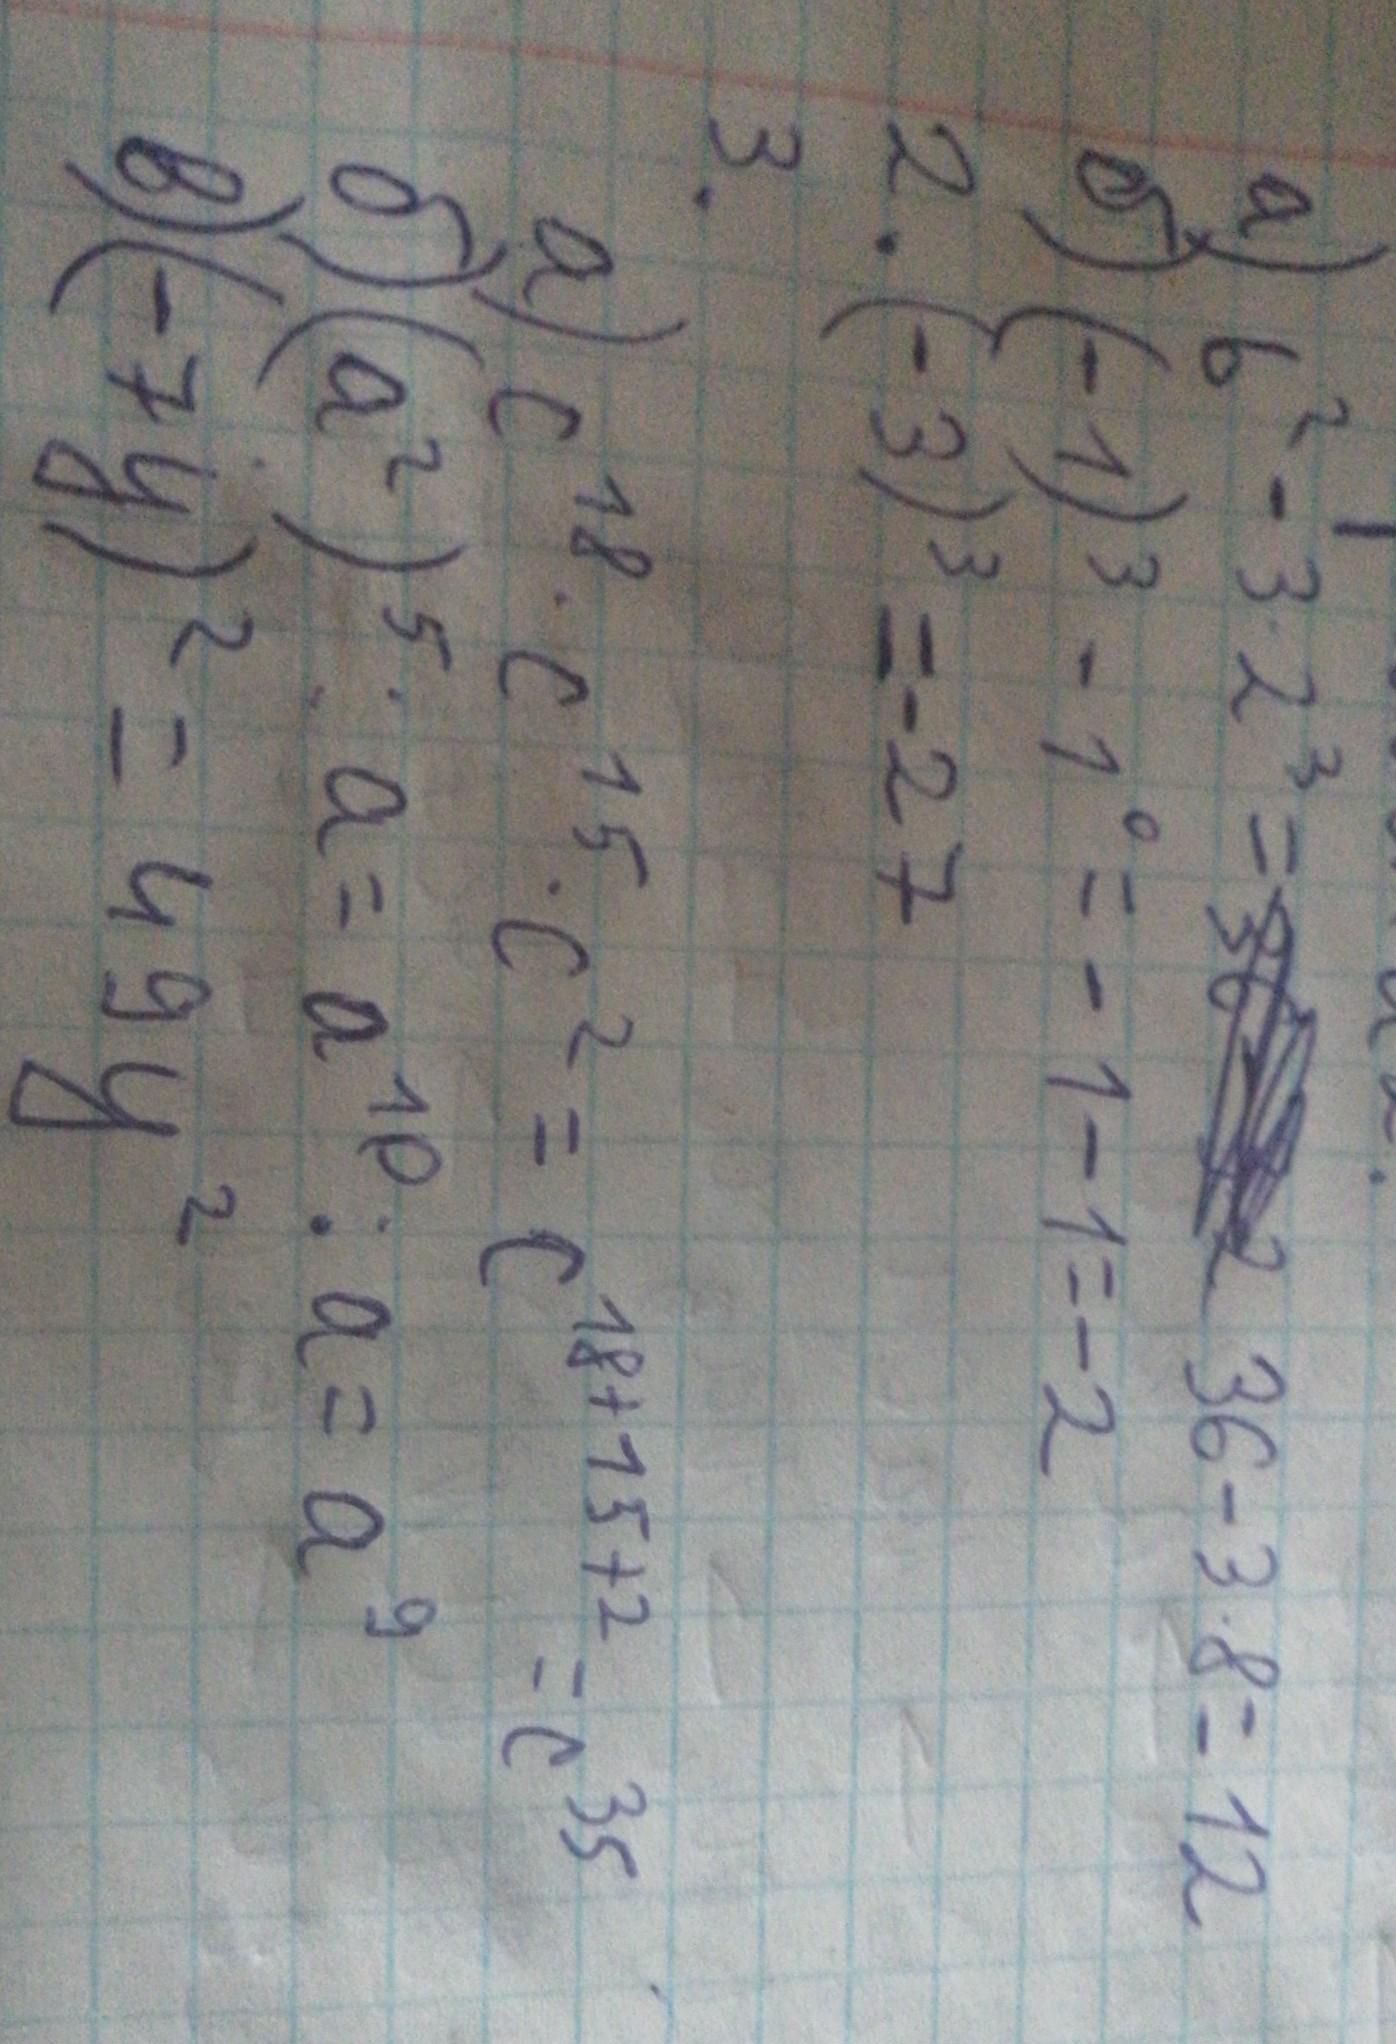 а) 6² - 3·2³ = 36 - 3·8 = 12
б) (-1)³ - 1⁰ = -1 - 1 = -2
2. (-3)³ = -27
3.
а) c¹⁸ · c¹⁵ · c² = c¹⁸⁺¹⁵⁺² = c³⁵
б) (a²)⁵ : a = a¹⁰ : a = a⁹
в) (-7y)² = 49y²